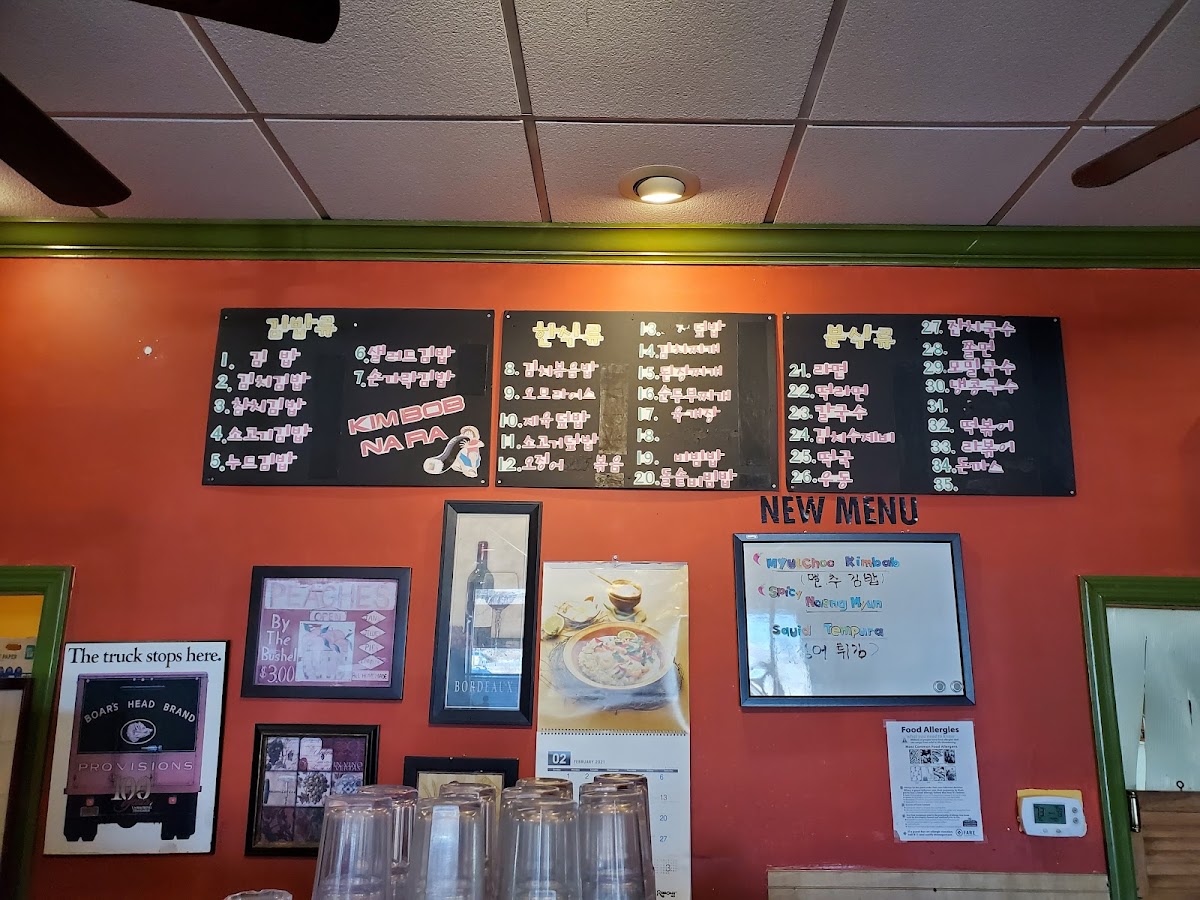 김밥류
1. 김 밥
2. 김치김밥
3. 참치김밥
4. 소고기김밥
5. 누드김밥
6. 샐러드김밥
7. 손가락김밥
KIMBOB
NARA
분식류
8. 김치볶음밥
9. 오므라이스
10. 제육덮밥
11. 소고기덮밥
12. 오징어 볶음
13. 덮밥
14. 김치찌개
15. 된장찌개
16. 순두부찌개
17. 육개장
18.
19. 비빔밥
20. 돌솥비빔밥
분식류
21. 라면
22. 떡라면
23. 칼국수
24. 김치수제비
25. 떡국
26. 우동
27. 잔치국수
28. 쫄면
29. 모밀국수
30. 냉콩국수
31.
32. 떡볶이
33. 라볶이
34. 돈까스
35.
NEW MENU
Myulchoo Kimbab
(멸추김밥)
Spicy Naeng Myun
Squid Tempura
어 튀김)
The truck stops here.
BOAR'S HEAD BRAND
PROVISIONS
PEACHES
By
The
Bushel
$3.00
BORDEAUX
02 FEBRUARY 2021
6
13
20
27
Food Allergies